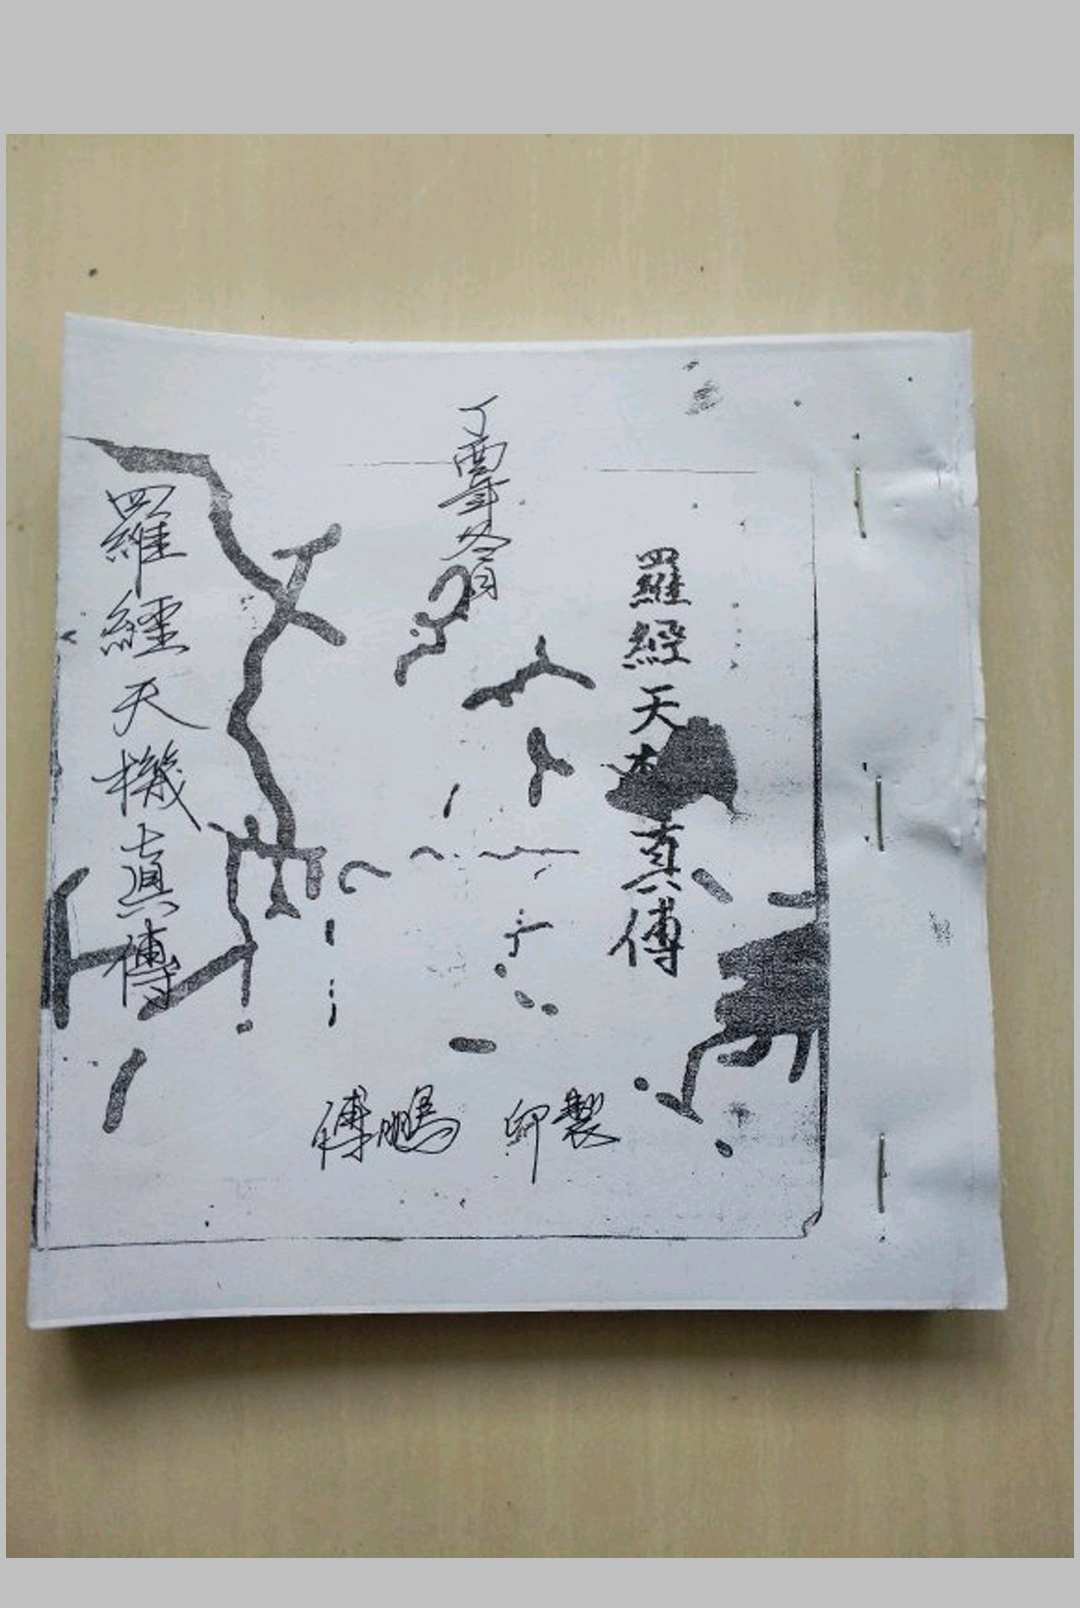 羅經天真傳
丁酉年冬月
羅經天機真傳
傅鵬 印製